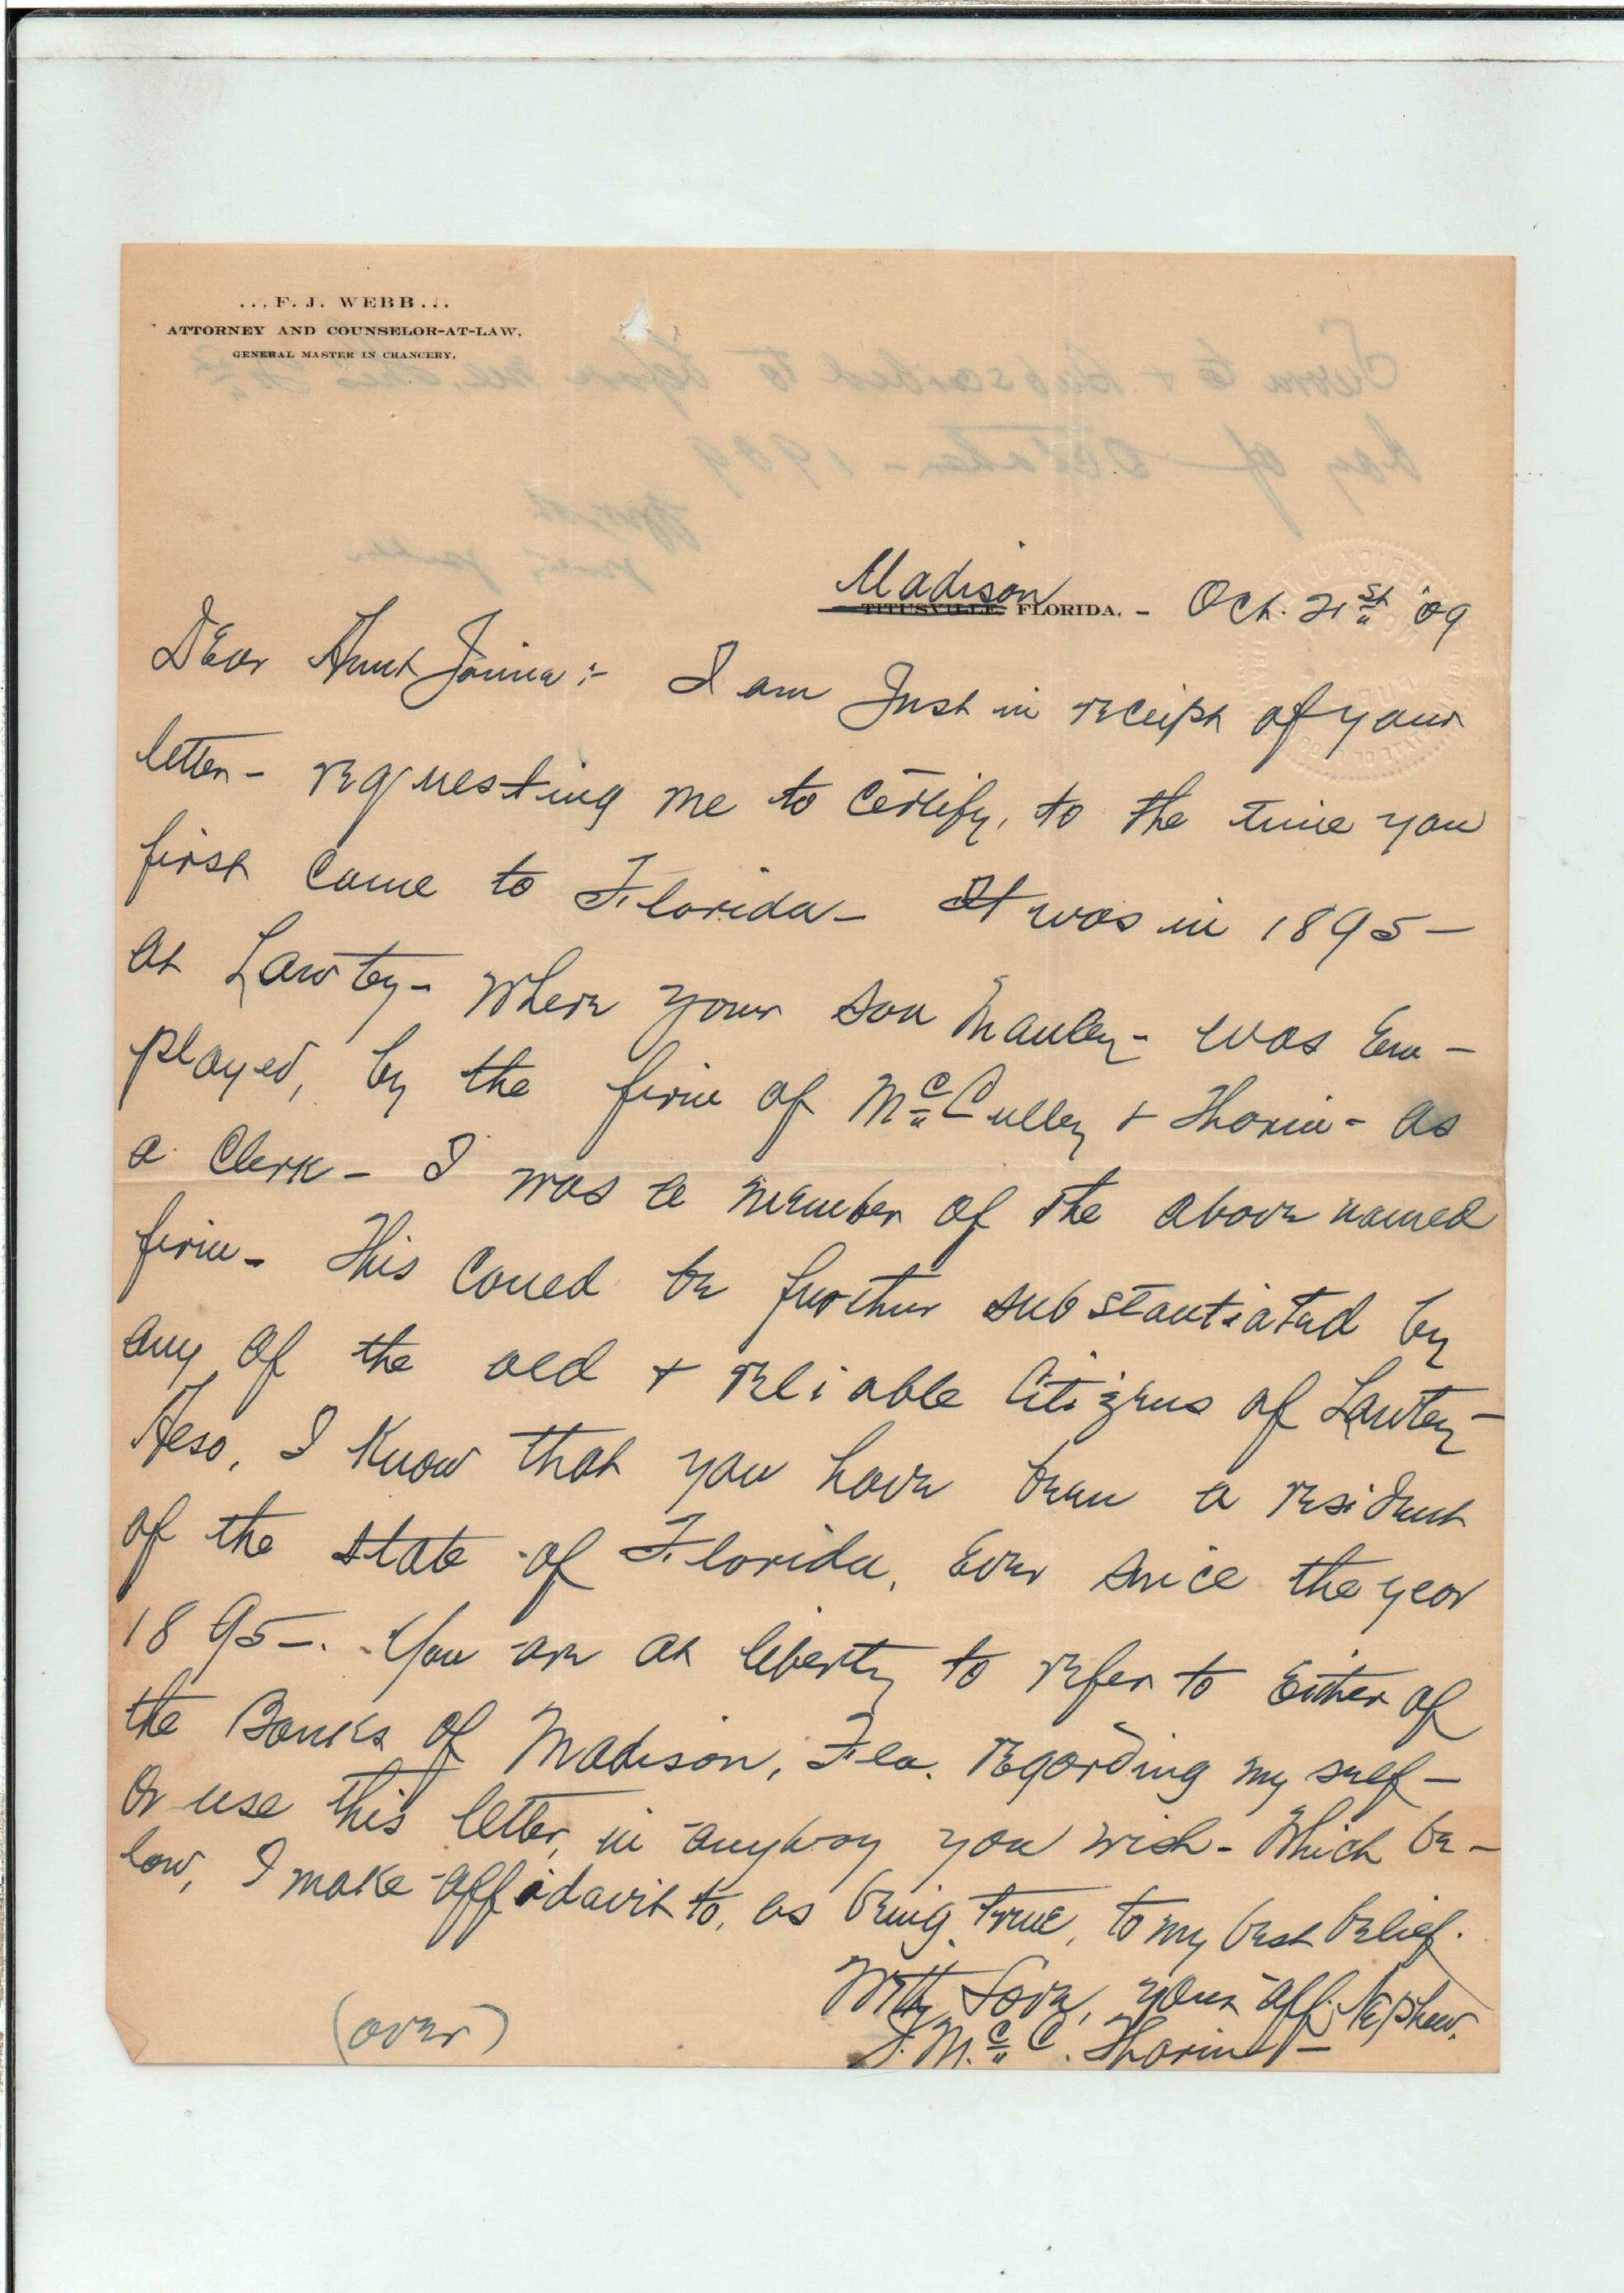 ...F. J. WEBB...
ATTORNEY AND COUNSELOR-AT-LAW.
GENERAL MASTER IN CHANCERY.
Madison
TITUSVILLE, FLORIDA. - Oct. 21st '09
Dear Aunt :- I am Just in receipt of your
letter - requesting me to certify, to the time you
first came to Florida - It was in 1895 -
at Lawtey - Where your son Manley - was Em-
ployed, by the firm of McCulley + Thorin - as
a Clerk - I was a member of the above named
firm - This Could be further substantiated by
any of the old + reliable Citizens of Lawtey -
Also, I Know that you have been a resident
of the state of Florida, Ever since the year
1895 -. You are at liberty to refer to Either of
the Banks of Madison, Fla. regarding my self -
Or use this letter, in anyway you wish - Which be-
low, I make affidavit to, as being true, to my best belief.
With Love, your aff. Nephew.
Mc C. Thorin -
(over)